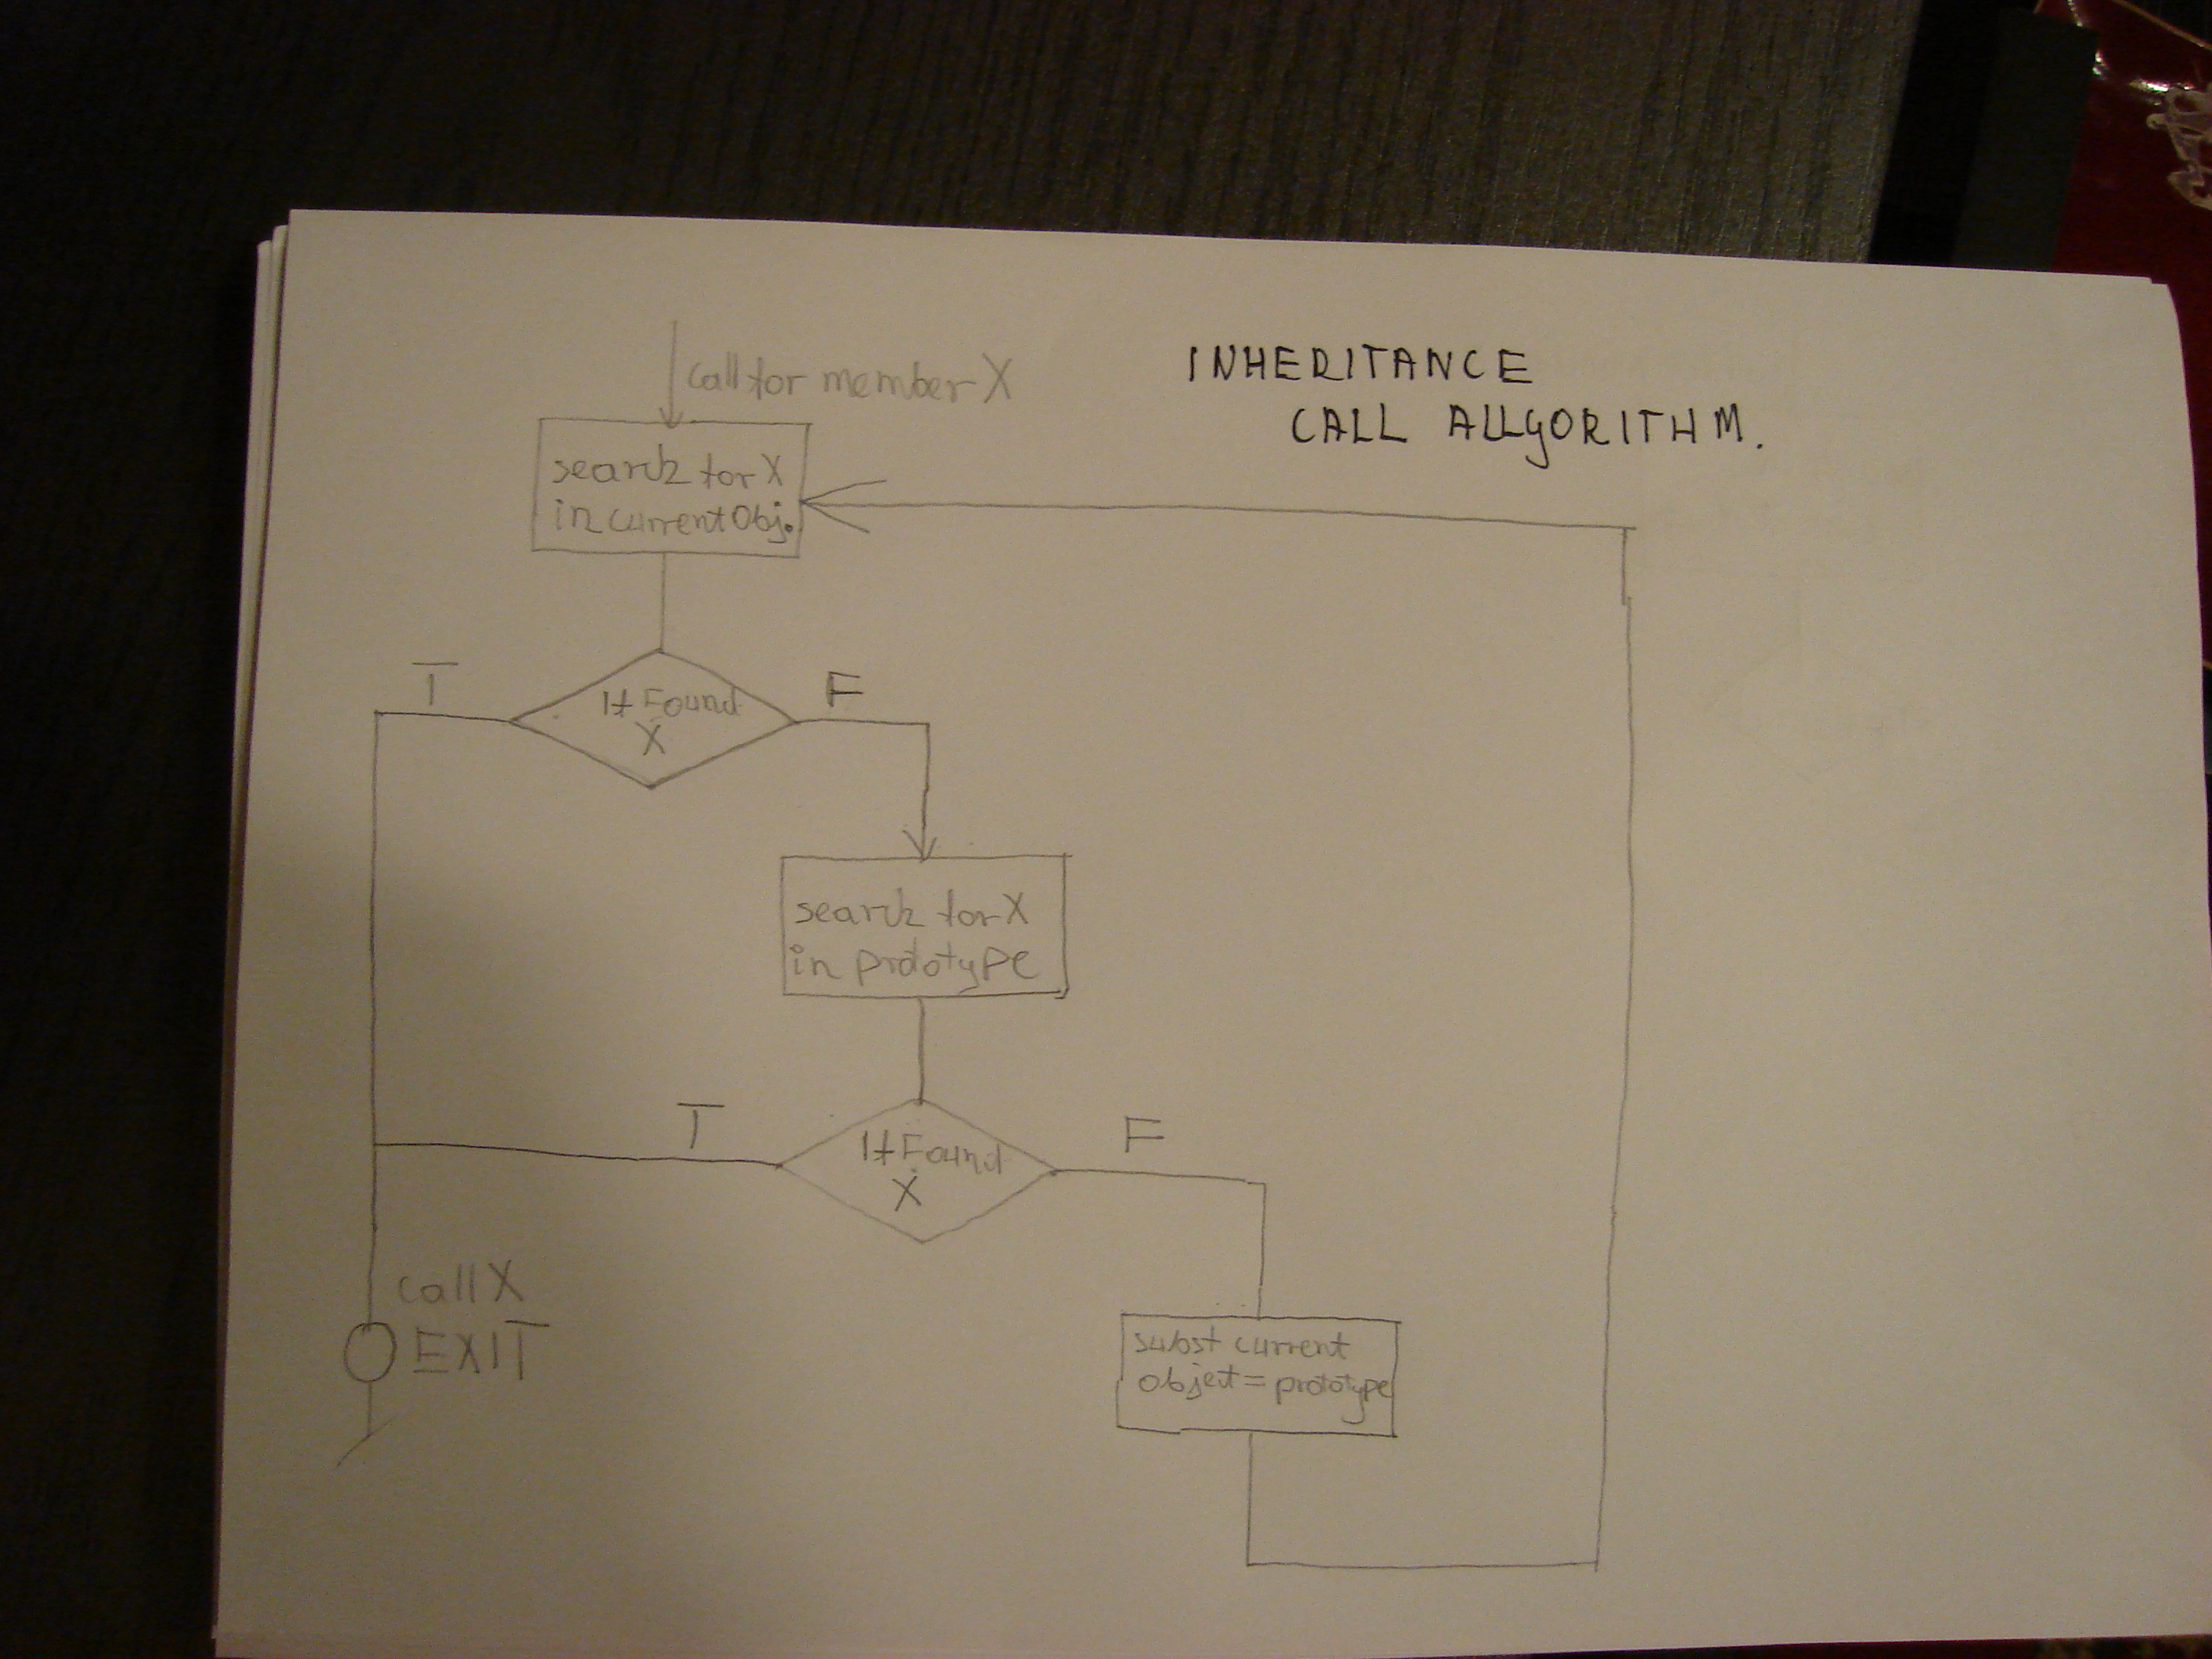 INHERITANCE
CALL ALLGORITHM.
call for member X
search for X
in current Obj.
T
F
If Found
X
search for X
in prototype
T
F
If Found
X
call X
EXIT
subst current
object = prototype